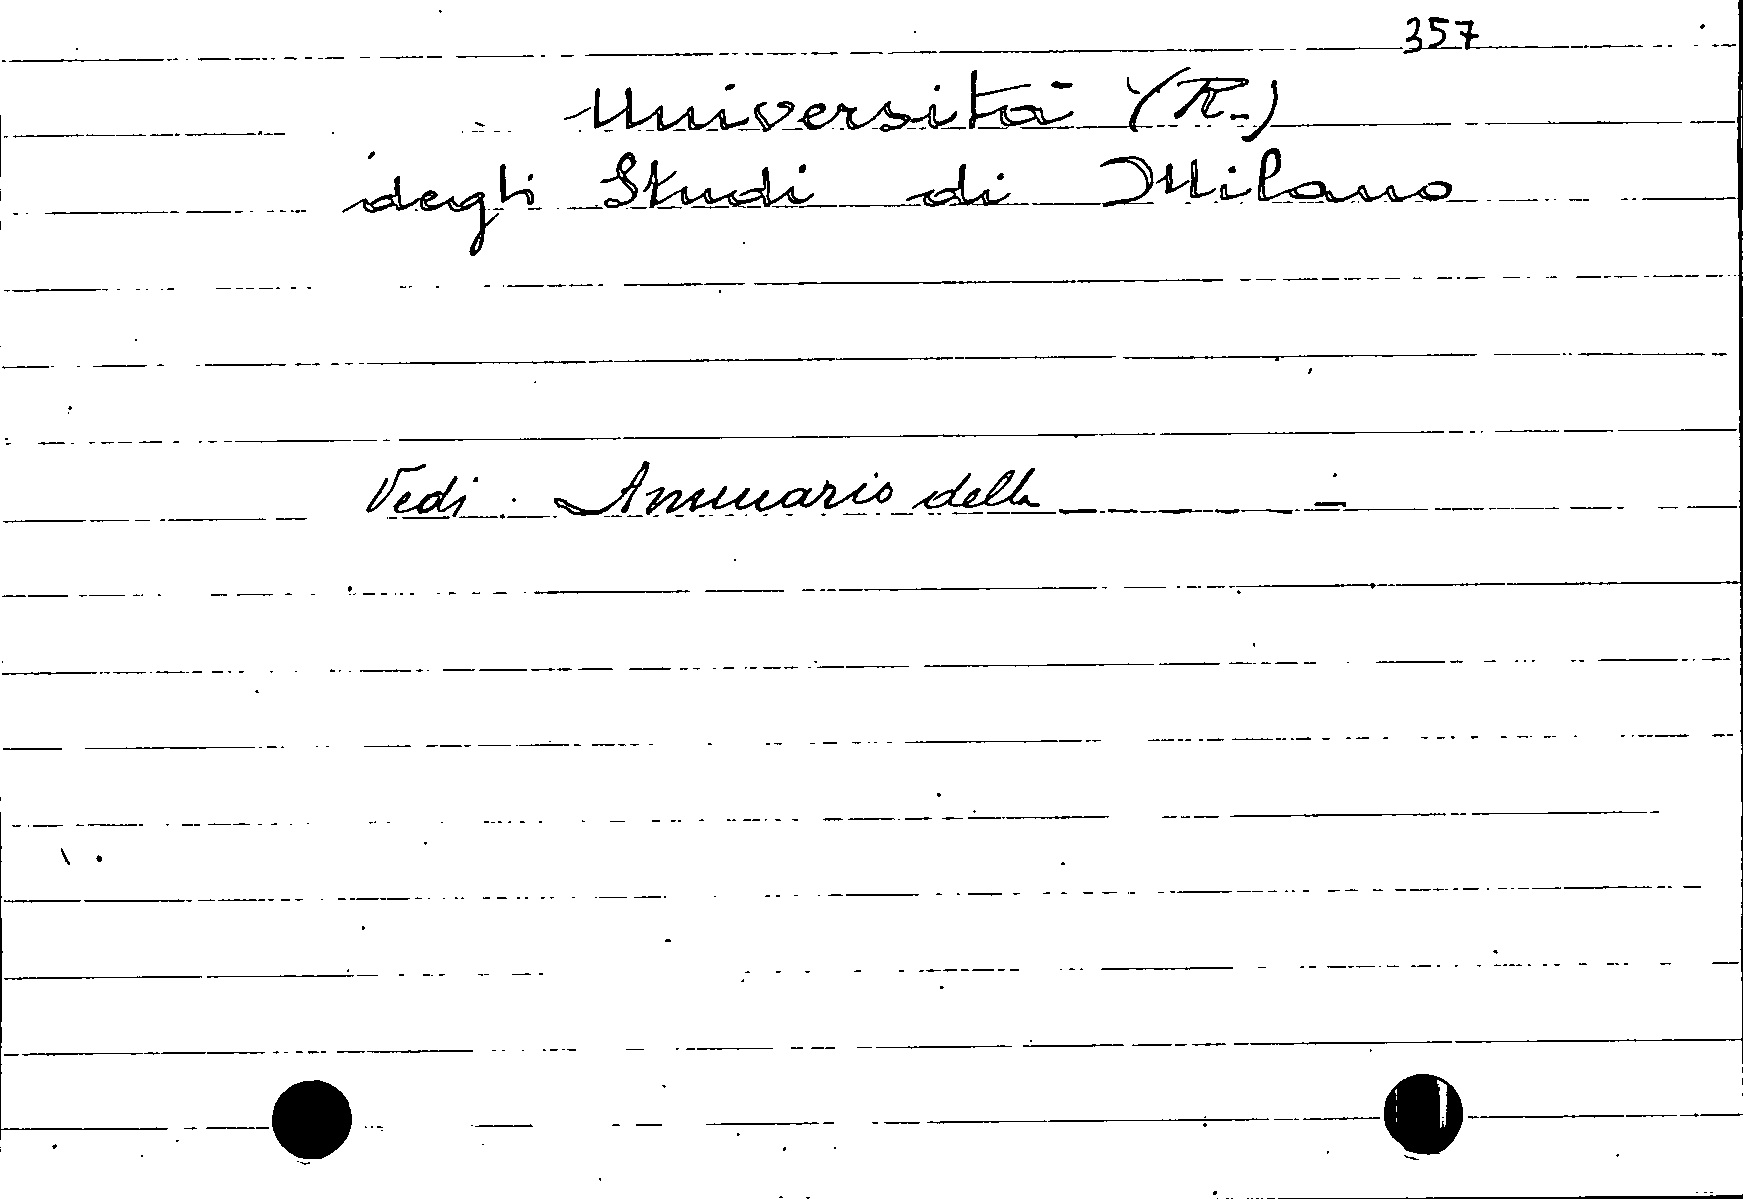 357
Università (R.)
degli Studi di Milano
Vedi: Annuario della _ _ _ _ _ _